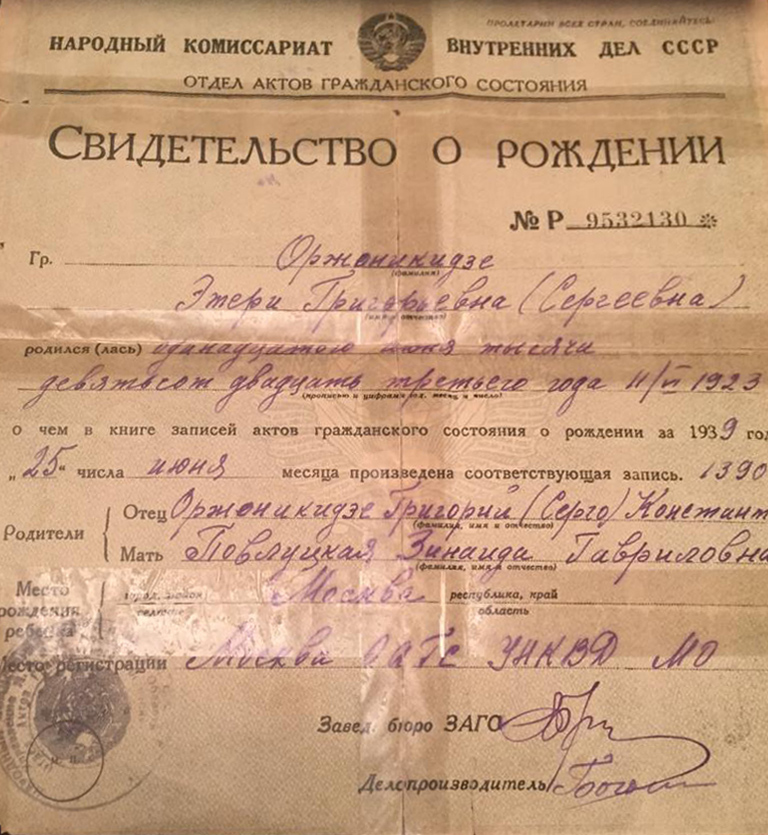 ПРОЛЕТАРИИ ВСЕХ СТРАН, СОЕДИНЯЙТЕСЬ!
НАРОДНЫЙ КОМИССАРИАТ ВНУТРЕННИХ ДЕЛ СССР
ОТДЕЛ АКТОВ ГРАЖДАНСКОГО СОСТОЯНИЯ
СВИДЕТЕЛЬСТВО О РОЖДЕНИИ
№ Р 9532130 *
Гр. Орджоникидзе
(фамилия)
Этери Григорьевна (Сергеевна)
(имя и отчество)
родился (лась) одинадцатого июня тысяча
девятьсот двадцать третьего года 11/VI 1923
(прописью и цифрами год, месяц и число)
о чем в книге записей актов гражданского состояния о рождении за 1939 год
„25“ числа июня месяца произведена соответствующая запись. 1390
Родители
Отец Орджоникидзе Григорий (Серго) Констант
(фамилия, имя и отчество)
Мать Павлуцкая Зинаида Гавриловна
(фамилия, имя и отчество)
Место рождения ребенка
город, Москва республика, край
селение область
Место регистрации Москва ОАГС УНКВД МО
Завед. бюро ЗАГС
Делопроизводитель
м. п.